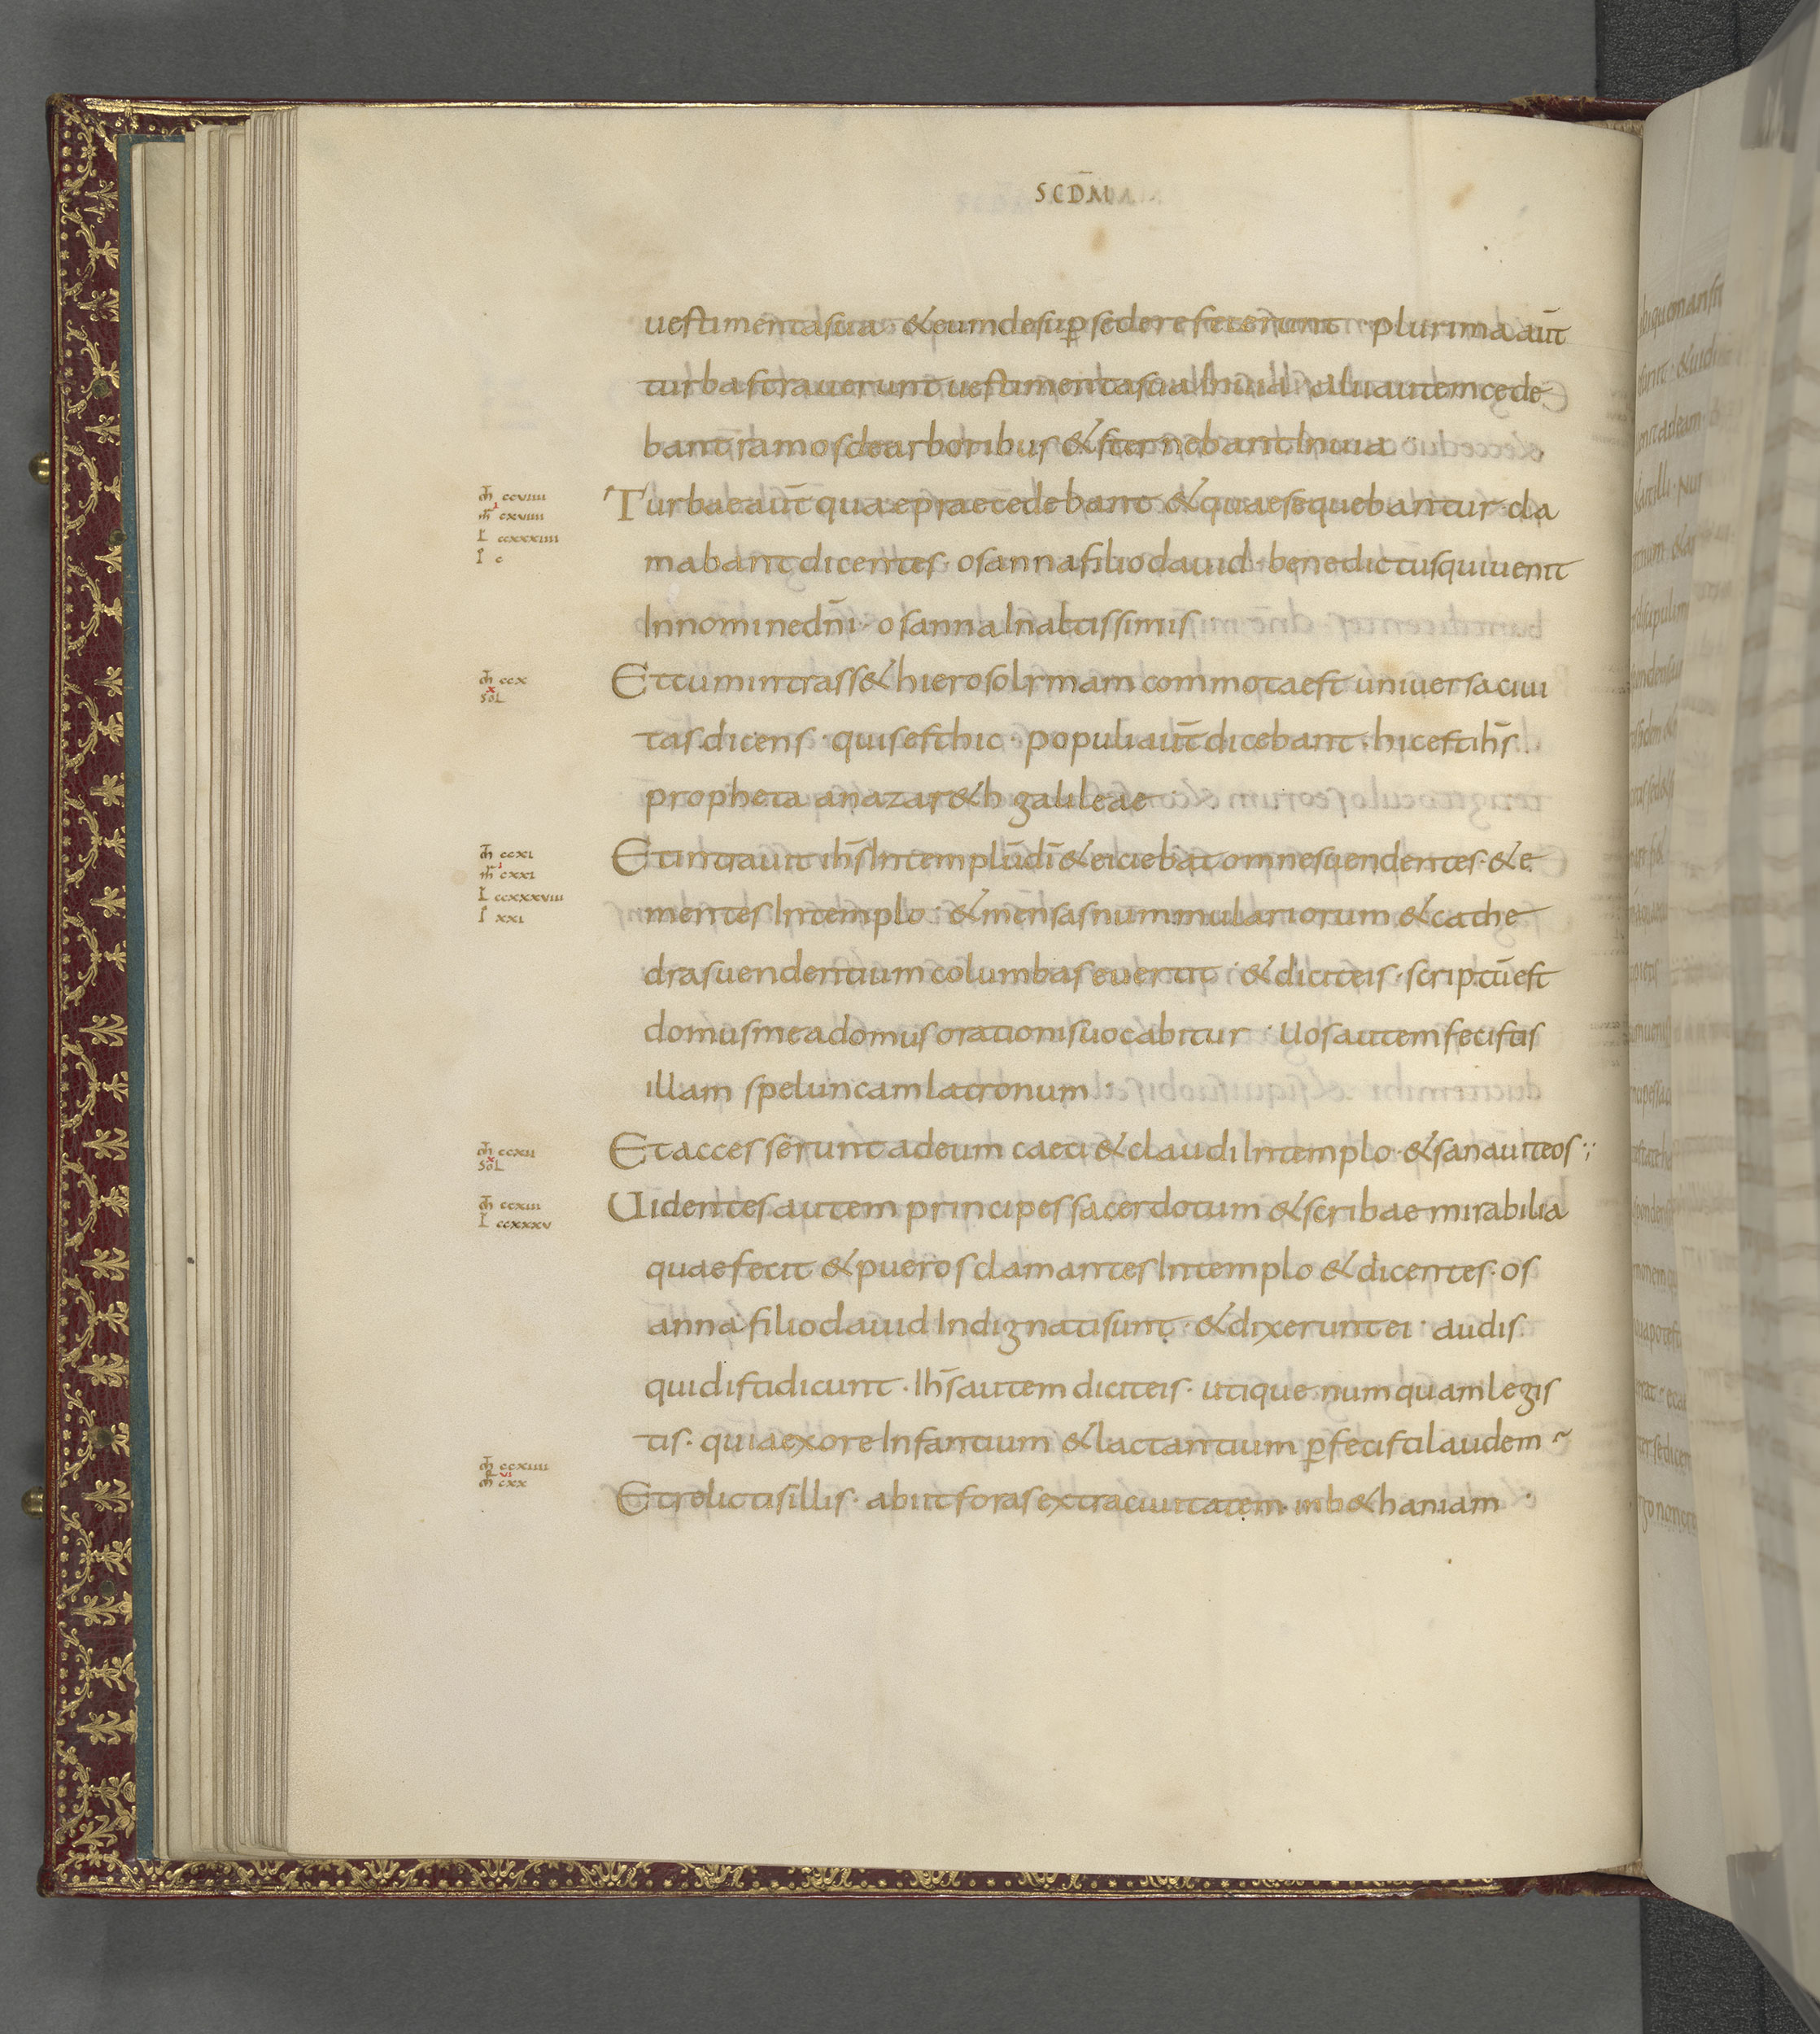 SCDM̄
uestimenta sua · & eum desup sedere fecerunt · plurima aut̄
turba strauerunt uestimenta sua In uia · alii autem cede
bant ramos de arboribus & sternebant In uia
m̄ ccviiii
m̄ cxviiii
L ccxxxiiii
I c
Turbae aut̄ quae praecedebant & quae sequebantur · cla
mabant dicentes · osanna filio dauid · benedictus qui uenit
In nomine dn̄i · osanna In altissimis
m̄ ccx
x
sol
Et cum intrass& hierosolymam commota est uniuersa ciui
tas dicens · quis est hic · populi aut̄ dicebant · hic est ih̄s
propheta a nazar&h galileae ·
m̄ ccxi
m̄ cxxi
L ccxxxviii
I xxi
Et intrauit ih̄s In templū dī & eiciebat omnes uendentes · & e
mentes In templo · & mensas nummulariorum & cathe
dras uendentium columbas euertit · & dicit eis · scriptū est
domus mea domus orationis uocabitur · Uos autem fecistis
illam speluncam latronum ·
m̄ ccxii
x
sol
Et accesserunt ad eum caeci & claudi In templo · & sanauit eos
m̄ ccxiii
L ccxxxv
Uidentes autem principes sacerdotum & scribae mirabilia
quae fecit & pueros clamantes In templo & dicentes · os
anna filio dauid Indignati sunt · & dixerunt ei · audis
quid isti dicunt · Ih̄s autem dicit eis · utique numquam legis
tis · quia ex ore Infantium & lactantium pfecisti laudem
m̄ ccxiiii
vi
m̄ cxx
Et relictis illis · abiit foras extra ciuitatem · in b&haniam ·